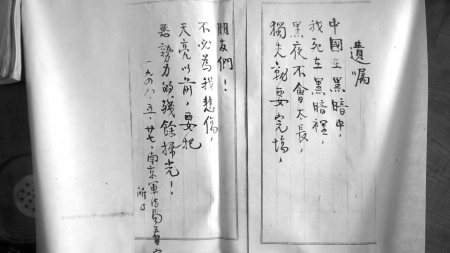 遺嘱
中國在黑暗中,
我死在黑暗裡,
黑夜不會太長,
獨夫就要完場,
朋友們!
不必為我悲傷,
天亮以前,要把
惡勢力的殘餘掃光!
一九四八、五、廿七、南京軍法局看守
所